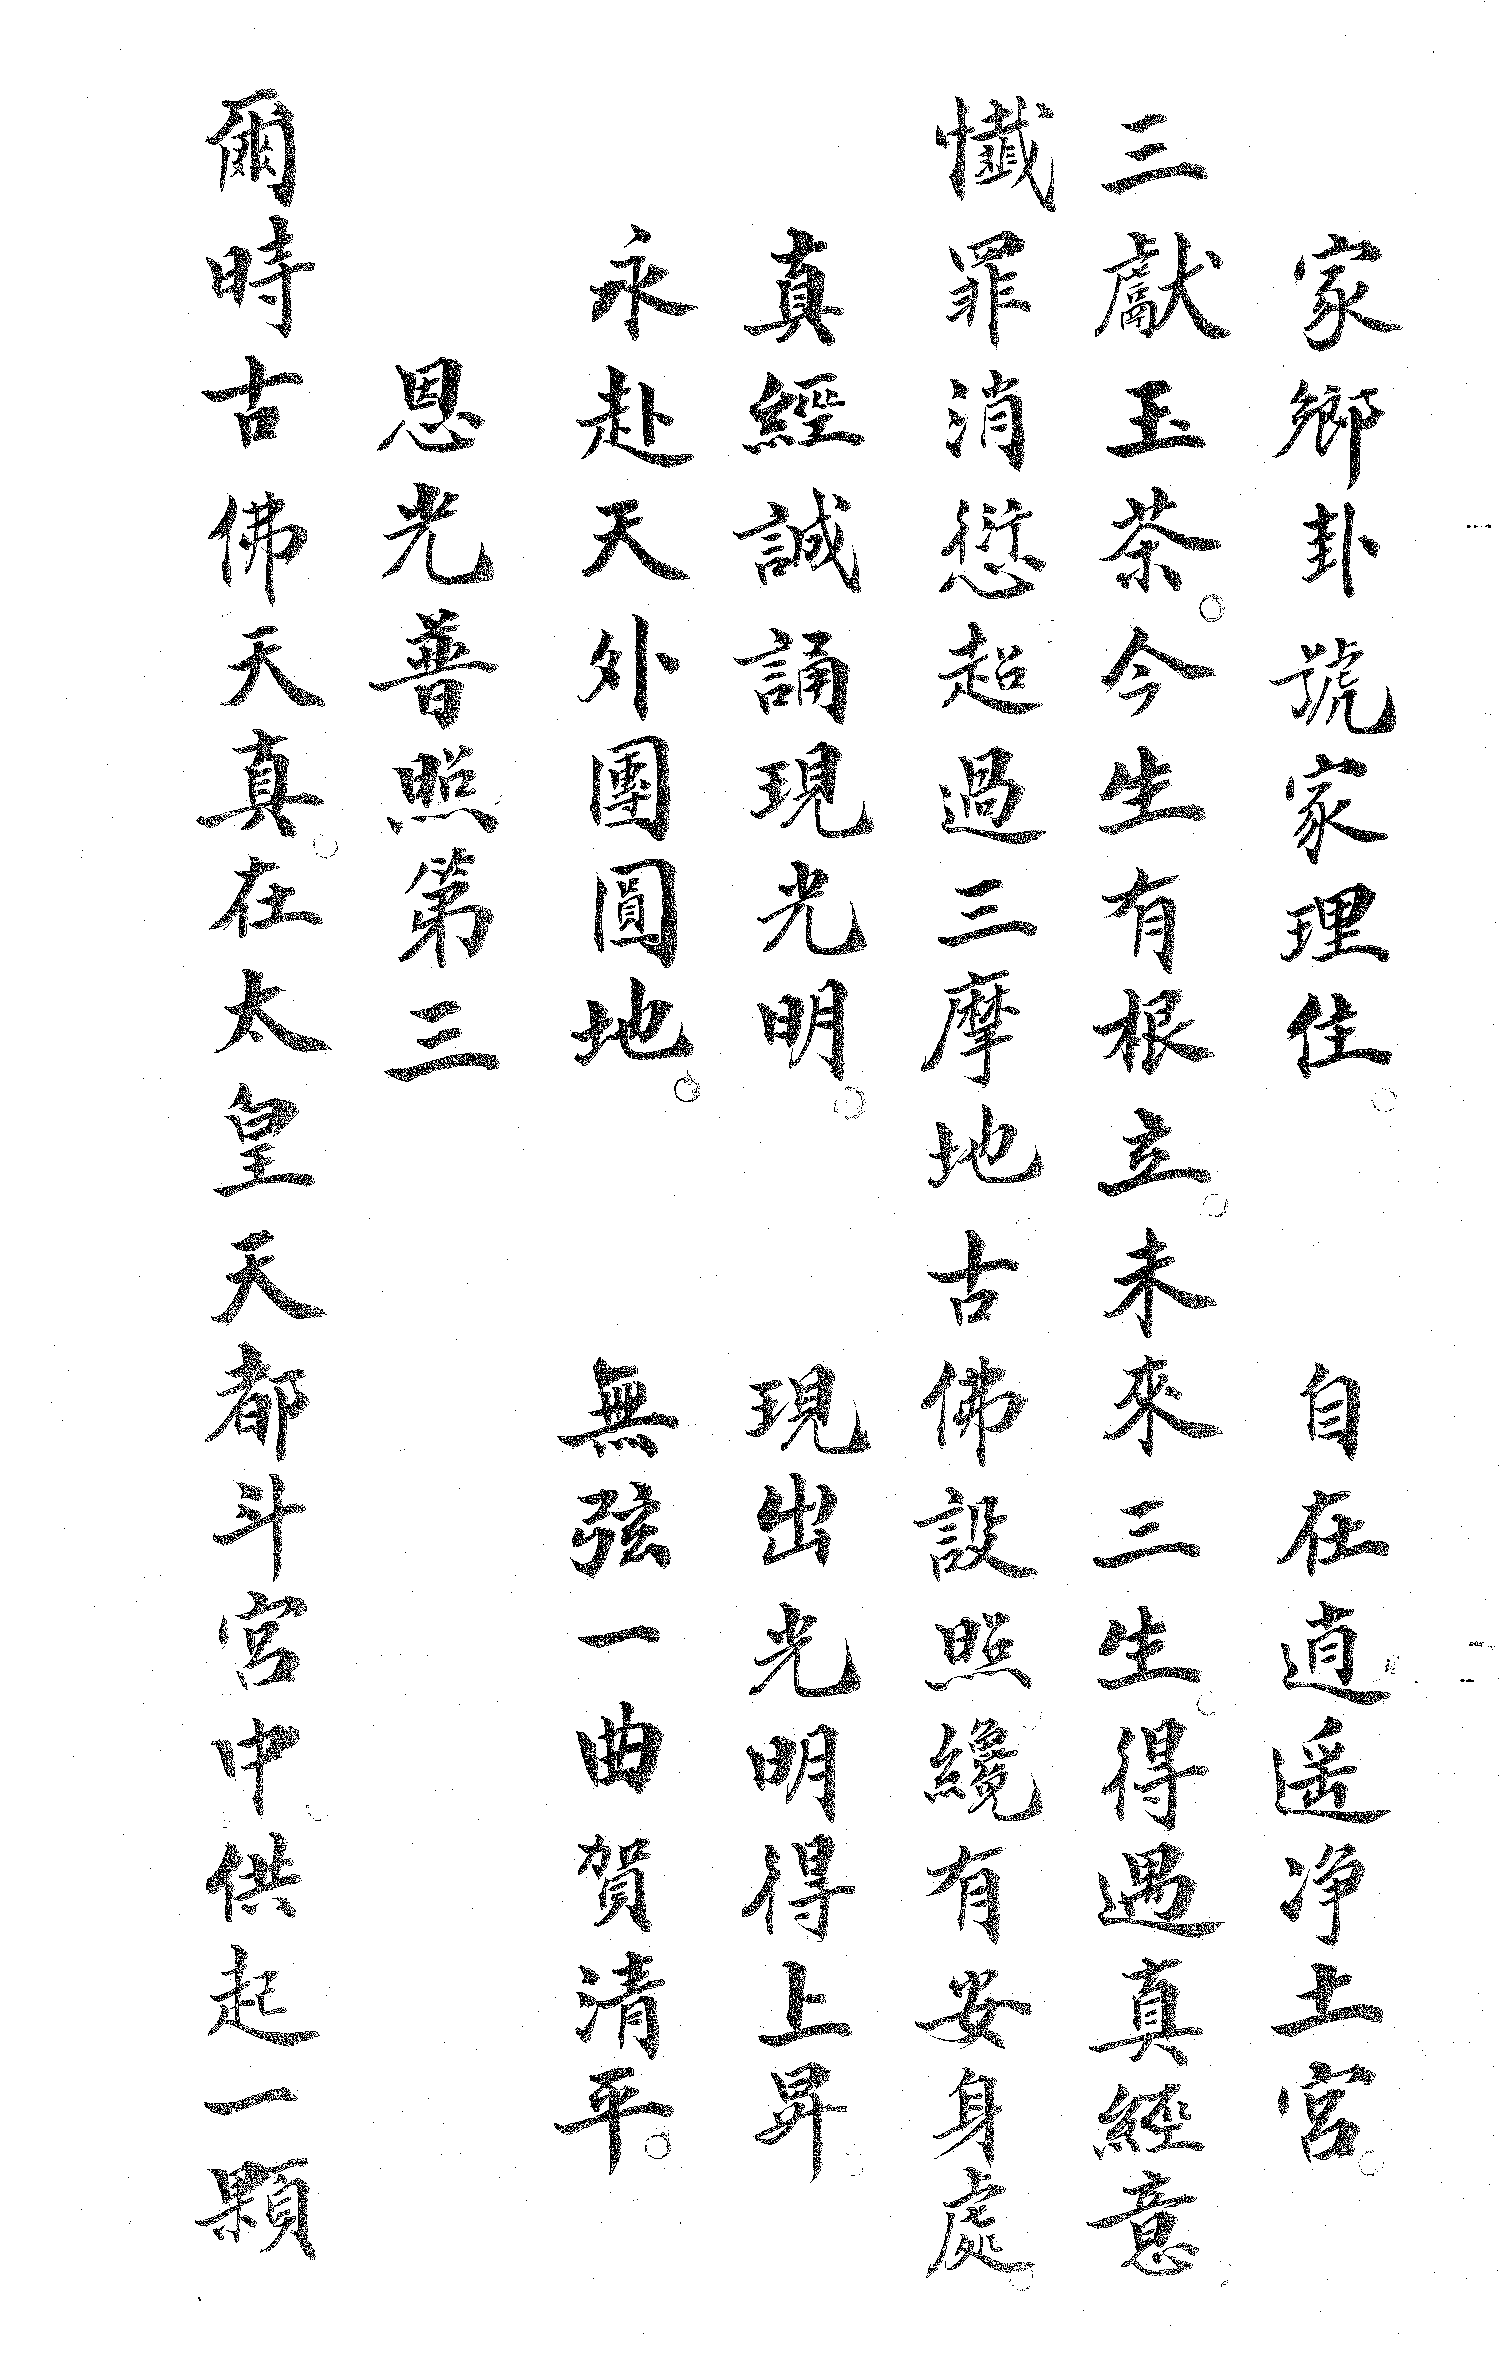 家鄉卦號家理住。 自在逍遥净土宮。
三獻玉茶。今生有根立。未來三生。得遇真經意
懺罪消愆超過三摩地。古佛設照。纔有安身處。
真經誠誦現光明。 現出光明得上昇。
永赴天外團圓地。 無弦一曲賀清平。
恩光普照第三
爾時古佛天真。在太皇天都斗宮中。供起一顆